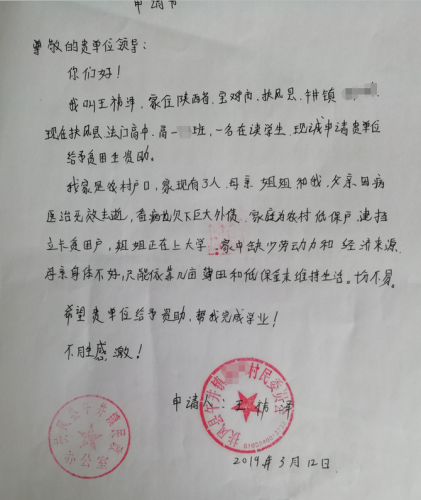 申请书
尊敬的贵单位领导：
你们好！
我叫王祎泽，家住陕西省，宝鸡市，扶风县，午井镇
现在扶风县，法门高中，高一班，一名在读学生，现诚申请贵单位
给予贫困生资助。
我家是农村户口，家现有3人，母亲 姐姐和我，父亲因病
医治无效去逝，看病也欠下巨大外债，家庭为农村低保户，建档
立卡贫困户，姐姐正在上大学，家中缺少劳动力和经济来源
母亲身体不好，只能依靠几亩薄田和低保金来维持生活。一切不易。
希望贵单位给予资助，帮我完成学业！
不胜感激！
申请人：王祎泽
扶风县午井镇村民委员会
2019年3月12日